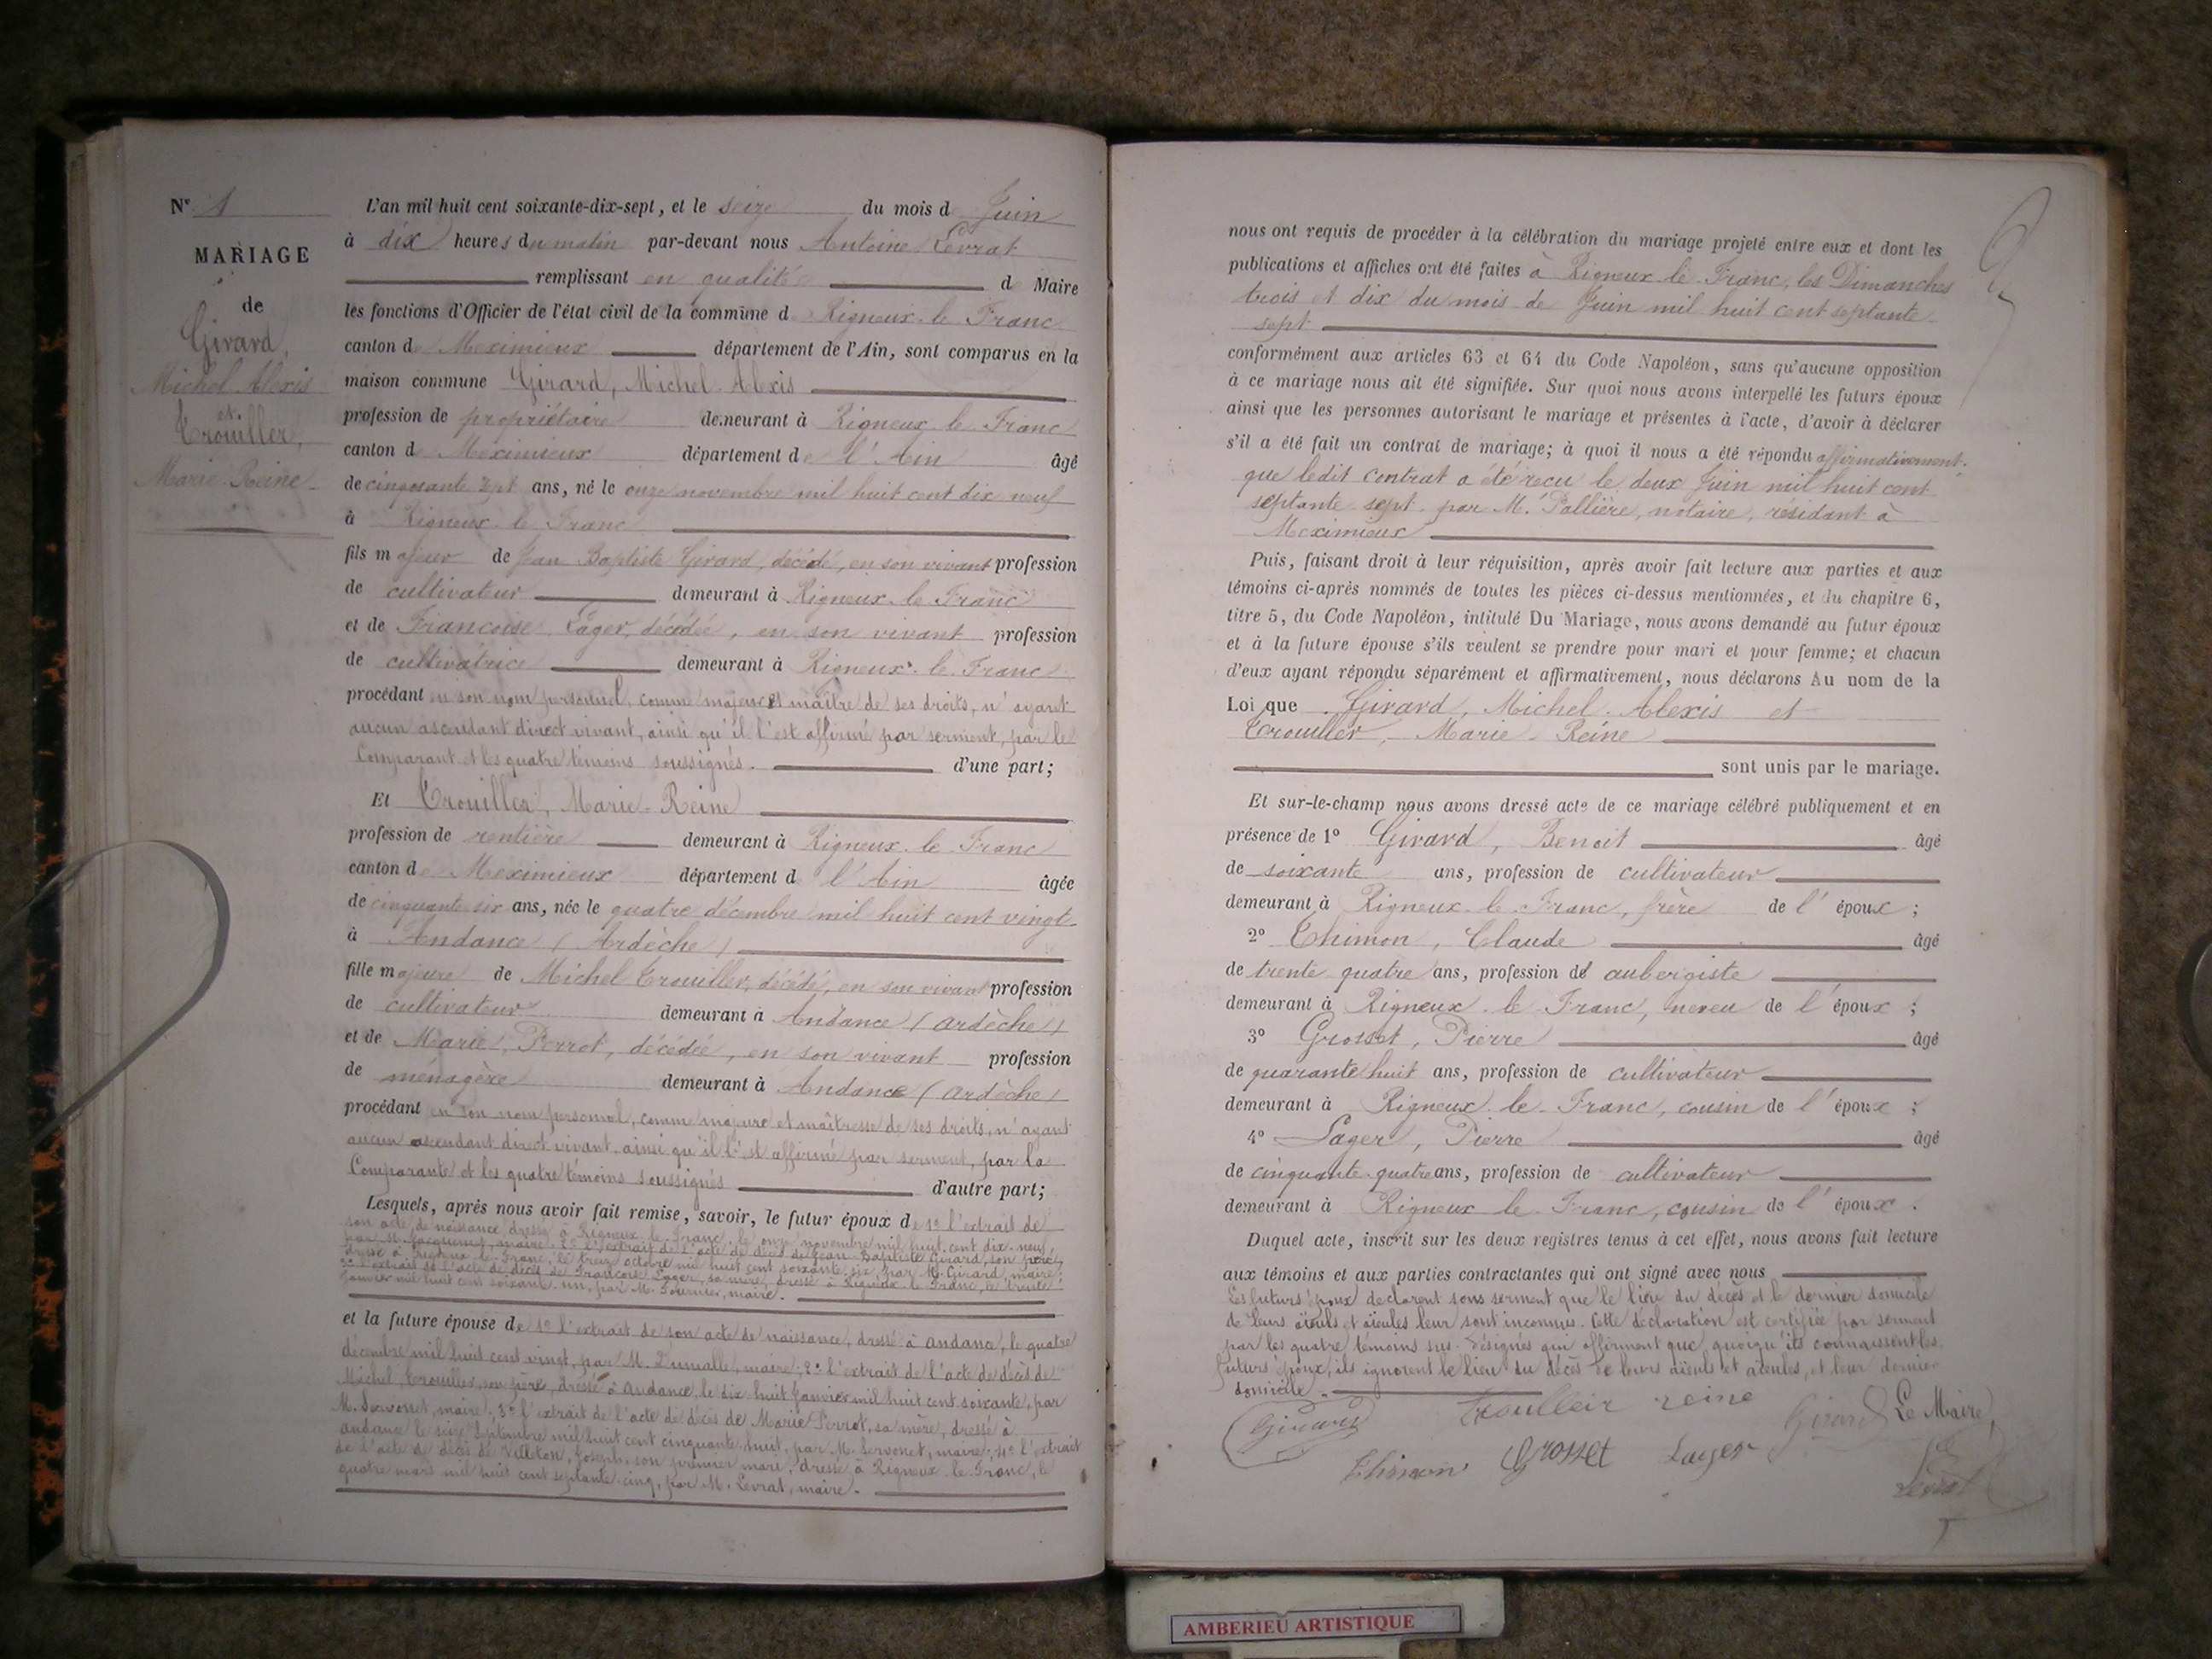 N° 1
MARIAGE
de
Girard,
Michel Alexis
et
Trouiller,
Marie-Reine
L'an mil huit cent soixante-dix-sept, et le seize du mois d Juin
à dix heures du matin par-devant nous Antoine Levrat
remplissant en qualité d Maire
les fonctions d'Officier de l'état civil de la commune d Rigneux-le-Franc
canton de Meximieux département de l'Ain, sont comparus en la
maison commune Girard, Michel-Alexis
profession de propriétaire demeurant à Rigneux-le-Franc
canton de Meximieux département de l'Ain âgé
de cinquante sept ans, né le onze novembre mil huit cent dix neuf
à Rigneux-le-Franc
fils majeur de Jean Baptiste Girard, décédé, en son vivant profession
de cultivateur demeurant à Rigneux-le-Franc
et de Françoise Lager, décédée, en son vivant profession
de cultivatrice demeurant à Rigneux-le-Franc
procédant en son nom personnel, comme majeur et maître de ses droits, n'ayant
aucun ascendant direct vivant, ainsi qu'il l'est affirmé par serment, par le
Comparant et les quatre témoins soussignés. d'une part;
Et Trouiller, Marie-Reine
profession de rentière demeurant à Rigneux-le-Franc
canton de Meximieux département d l'Ain âgée
de cinquante six ans, née le quatre décembre mil huit cent vingt
à Andance (Ardèche)
fille majeure de Michel Trouiller, décédé, en son vivant profession
de cultivateur demeurant à Andance (Ardèche)
et de Marie Perrot, décédée, en son vivant profession
de ménagère demeurant à Andance (Ardèche)
procédant en son nom personnel, comme majeure et maîtresse de ses droits, n'ayant
aucun ascendant direct vivant, ainsi qu'il l'est affirmé par serment, par la
Comparante et les quatre témoins soussignés d'autre part;
Lesquels, après nous avoir fait remise, savoir, le futur époux de 1° l'extrait de
son acte de naissance, dressé à Rigneux-le-Franc, le onze novembre mil huit cent dix-neuf,
par M. maire; 2° l'extrait de l'acte de décès de Jean Baptiste Girard, son père,
dressé à Rigneux-le-Franc, le treize octobre mil huit cent soixante six, par M. Girard, maire;
3° l'extrait de l'acte de décès de Françoise Lager, sa mère, dressé à Rigneux-le-Franc, le trente
janvier mil huit cent soixante-un, par M. Fournier, maire.
et la future épouse de 1° l'extrait de son acte de naissance, dressé à Andance, le quatre
décembre mil huit cent vingt, par M. maire; 2° l'extrait de l'acte de décès de
Michel Trouiller, son père, dressé à Andance, le dix huit Janvier mil huit cent soixante, par
M. Servonet, maire; 3° l'extrait de l'acte de décès de Marie Perrot, sa mère, dressé à
Andance le seize Septembre mil huit cent cinquante huit, par M. Servonet, maire; 4° l'extrait
de l'acte de décès de Villeton, Joseph, son premier mari, dressé à Rigneux-le-Franc, le
quatre mars mil huit cent septante-cinq, par M. Levrat, maire.
nous ont requis de procéder à la célébration du mariage projeté entre eux et dont les
publications et affiches ont été faites à Rigneux-le-Franc, les Dimanches
trois et dix du mois de Juin mil huit cent septante-
sept
conformément aux articles 63 et 64 du Code Napoléon, sans qu'aucune opposition
à ce mariage nous ait été signifiée. Sur quoi nous avons interpellé les futurs époux
ainsi que les personnes autorisant le mariage et présentes à l'acte, d'avoir à déclarer
s'il a été fait un contrat de mariage; à quoi il nous a été répondu affirmativement.
que ledit contrat a été reçu le deux Juin mil huit cent
septante sept par M. Pallière, notaire, résidant à
Meximieux
Puis, faisant droit à leur réquisition, après avoir fait lecture aux parties et aux
témoins ci-après nommés de toutes les pièces ci-dessus mentionnées, et du chapitre 6,
titre 5, du Code Napoléon, intitulé Du Mariage, nous avons demandé au futur époux
et à la future épouse s'ils veulent se prendre pour mari et pour femme; et chacun
d'eux ayant répondu séparément et affirmativement, nous déclarons Au nom de la
Loi que Girard, Michel-Alexis et
Trouiller, Marie-Reine
sont unis par le mariage.
Et sur-le-champ nous avons dressé acte de ce mariage célébré publiquement et en
présence de 1° Girard, Benoit âgé
de soixante ans, profession de cultivateur
demeurant à Rigneux-le-Franc, frère de l'époux;
2° Thimon, Claude âgé
de trente quatre ans, profession de aubergiste
demeurant à Rigneux-le-Franc, neveu de l'époux;
3° Grosset, Pierre âgé
de quarante huit ans, profession de cultivateur
demeurant à Rigneux-le-Franc, cousin de l'époux;
4° Lager, Pierre âgé
de cinquante-quatre ans, profession de cultivateur
demeurant à Rigneux-le-Franc, cousin de l'époux.
Duquel acte, inscrit sur les deux registres tenus à cet effet, nous avons fait lecture
aux témoins et aux parties contractantes qui ont signé avec nous
Les futurs époux déclarent sous serment que le lieu du décès et le dernier domicile
de leurs aïeuls et aïeules leur sont inconnus. Cette déclaration est certifiée par serment
par les quatre témoins sus-désignés qui affirment que, quoiqu'ils connaissent les
futurs époux, ils ignorent le lieu du décès de leurs aïeuls et aïeules, et leur dernier
domicile.
Girard Troulleir reine Girard Le Maire,
Thimon Grosset Lager Levrat
AMBERIEU ARTISTIQUE